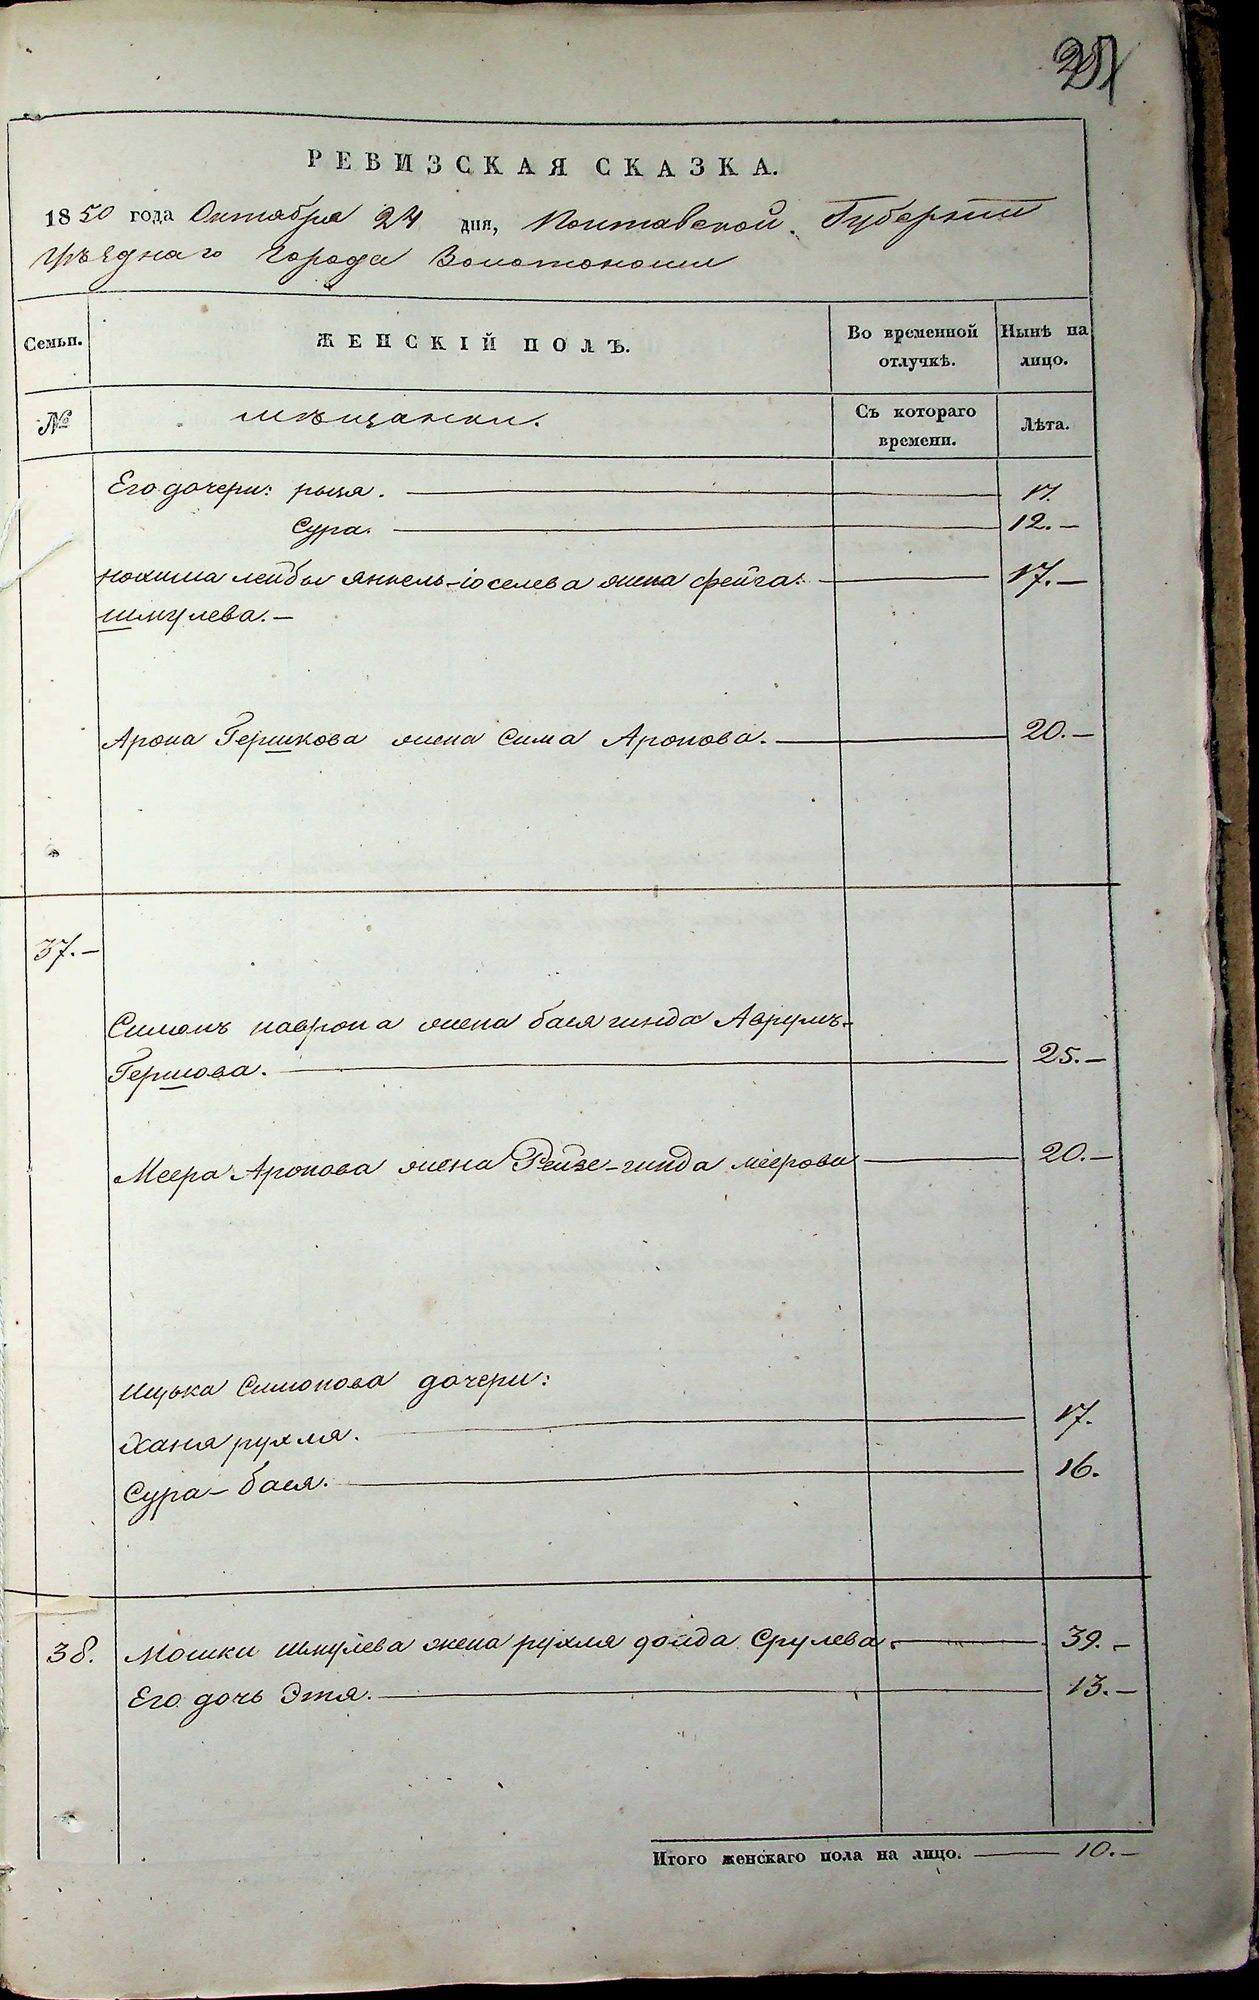 РЕВИЗСКАЯ СКАЗКА.
1850 года Октября 24 дня, Полтавской Губернии
уѣзднаго города Золотоноши
Семьи. ЖЕНСКІЙ ПОЛЪ. Во временной отлучкѣ. Нынѣ на лицо.
№ мѣщанки. Съ котораго времени. Лѣта.
Его дочери: рыся. 17.
Сура. 12.
нохима лейбы янкель-іоселева жена фейга 17.
шмулева.
Арона Гершкова жена Сима Аронова. 20.
37.
Симонъ жена бася гинда Аврумъ-
Гершова. 25.
Меера Аронова жена Рейзе-гинда меерова 20.
ицька Симонова дочери:
Ханя рухля. 17.
Сура-бася. 16.
38. Мошки шмулева жена рухля двойда Срулева. 39.
Его дочь Этя. 13.
Итого женскаго пола на лицо. 10.